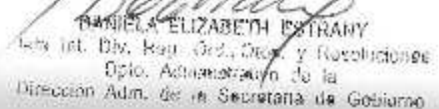 DANIELA ELIZABETH ESTRANY
Jefa Int. Div. Reg. Ord., Dtos. y Resoluciones
Dpto. Administrativo de la
Dirección Adm. de la Secretaría de Gobierno